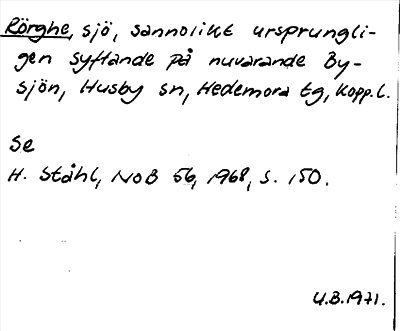 Rörghe, sjö, sannolikt ursprungli-
gen syftande på nuvarande By-
sjön, Husby sn, Hedemora tg, Kopp. l.
Se
H. Ståhl, NoB 56, 1968, s. 150.
U.B. 1971.